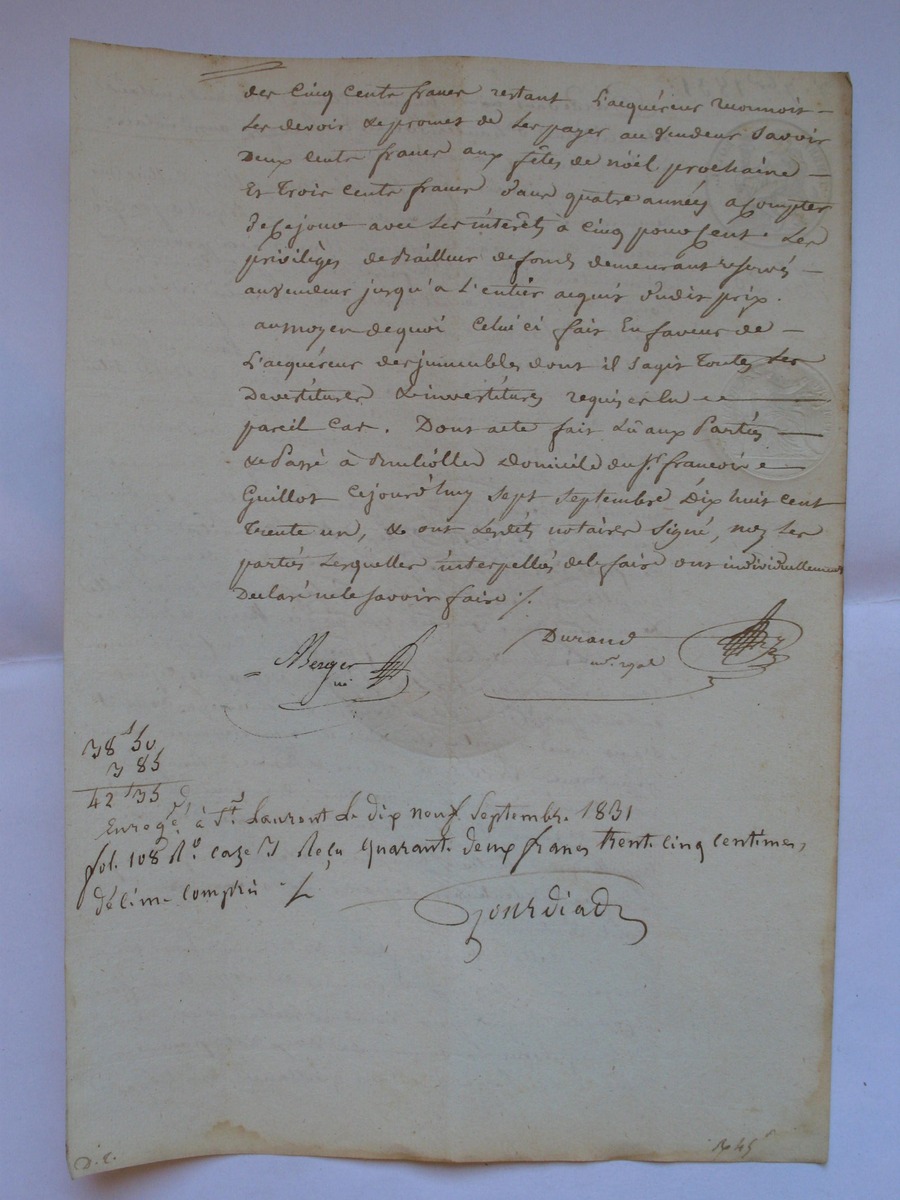 des Cinq Cents francs restant L'acquéreur reconnoit —
Les devoir & promet de Les payer au vendeur Savoir
Deux Cents francs aux fêtes de nöel prochaine —
Et Trois Cents francs dans quatre années a Compter
de Ce jour avec Les intérêts à Cinq pour Cent. Les
privilèges de Bailleur de fonds demeurant reservés —
au vendeur jusqu'a L'entier acquis dudit prix.
au moyen de quoi Celui ci fait En faveur de —
L'acquéreur des immeubles dont il S'agit Toutes Les
Devestitures & investitures requises En
pareil Cas. Dont acte fait Lû aux Parties —
& Passé à Domicile du Sr. francois
Guillot Cejourd'huy Sept Septembre Dix huit Cent
Trente un, & ont Lesdits notaires Signé, non Les
parties Lesquelles interpellées de le faire ont individuellement
Declaré ne le Savoir faire ./.
Berger
nre
Durand
nre. royal
38 f 50
3 85
42 f 35
Enregé. à St. Laurent Le dix neuf Septembre 1831
fol. 108 Ro. case 3 Reçu quarante deux francs trente cinq centimes,
décime compris
D. E.